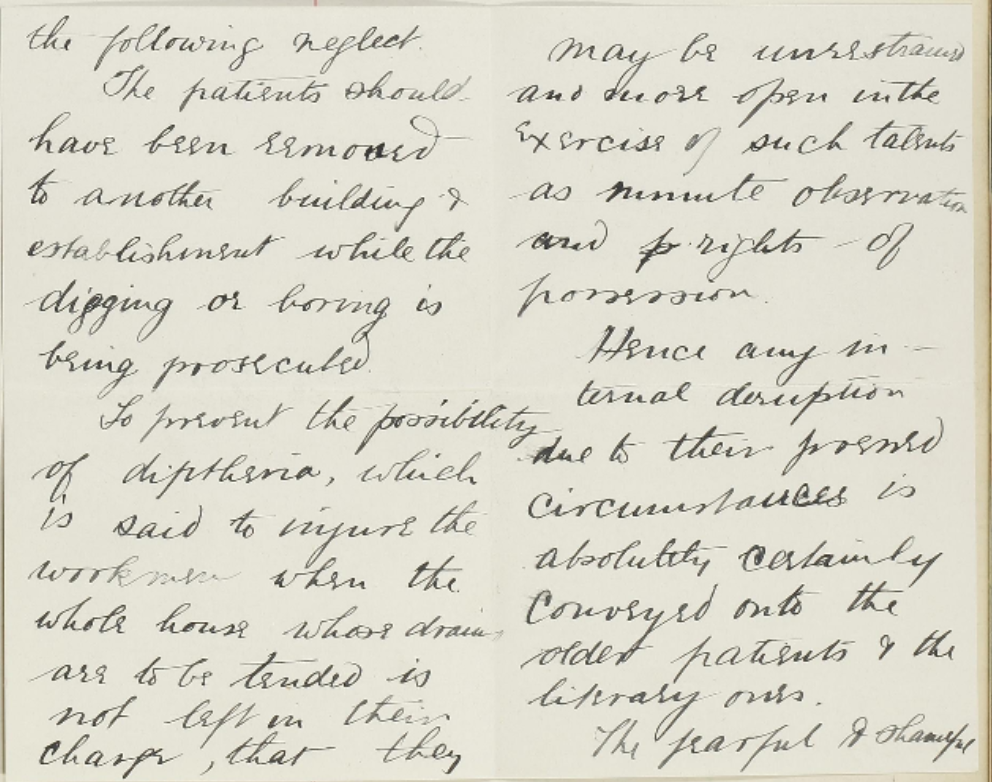 the following neglect.
The patients should
have been removed
to another building &
establishment while the
digging or boring is
being prosecuted.
To prevent the possibility
of diptheria, which
is said to injure the
workmen when the
whole house whose drains
are to be tended is
not left in their
charge, that they
may be unrestrained
and more open in the
exercise of such talents
as minute observation
and rights - of
possession.
Hence any in-
ternal
due to their
circumstances is
absolutely certainly
conveyed onto the
older patients & the
literary ones.
The fearful & shameful